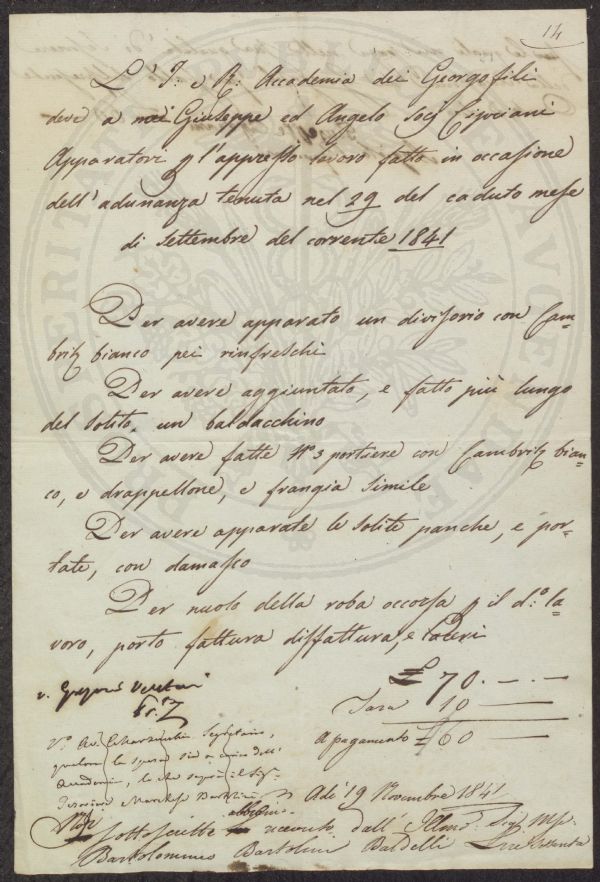 14
L'I: e R: Accademia dei Georgofili
deve a noi Giuseppe ed Angelo Socj Cipriani
Apparatori p l'appresso lavoro fatto in occasione
dell'adunanza tenuta nel 29 del caduto mese
di Settembre del corrente 1841
Per avere apparato un divisorio con Cam-
britz bianco pei rinfreschi
Per avere aggiuntato, e fatto più lungo
del solito, un baldacchino
Per avere fatte N.º 3 portiere con Cambritz bian-
co, e drappellone, e frangia simile
Per avere apparate le solite panche, e por-
tate, con damasco
Per nuolo della roba occorsa p il d.º la-
voro, porto fattura disfattura, e
£ 70. — . —
Tara 10 —
A pagamento £ 60 —
V.º
Adi 19 Novembre 1841
Noi
sottoscritti abbiamo ricevuto dall' Illmo. Sig.
Bartolommeo Bartolini Baldelli Lire Sessanta